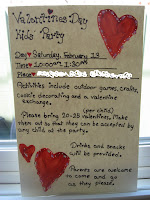 Valentines Day
Kids Party
Day♥ Saturday, February 13
Time♥ 10:00am - 1:30pm
Place♥
Activities include outdoor games, crafts,
cookie decorating and a valentine
exchange. (per child)
Please bring 20-25 valentines. Make
them out so that they can be accepted by
any child at the party.
Drinks and snacks
will be provided.
Parents are welcome
to come and go
as they please.